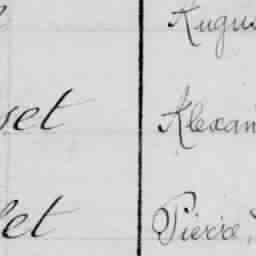 Augus
set Alexan
let Pierre,